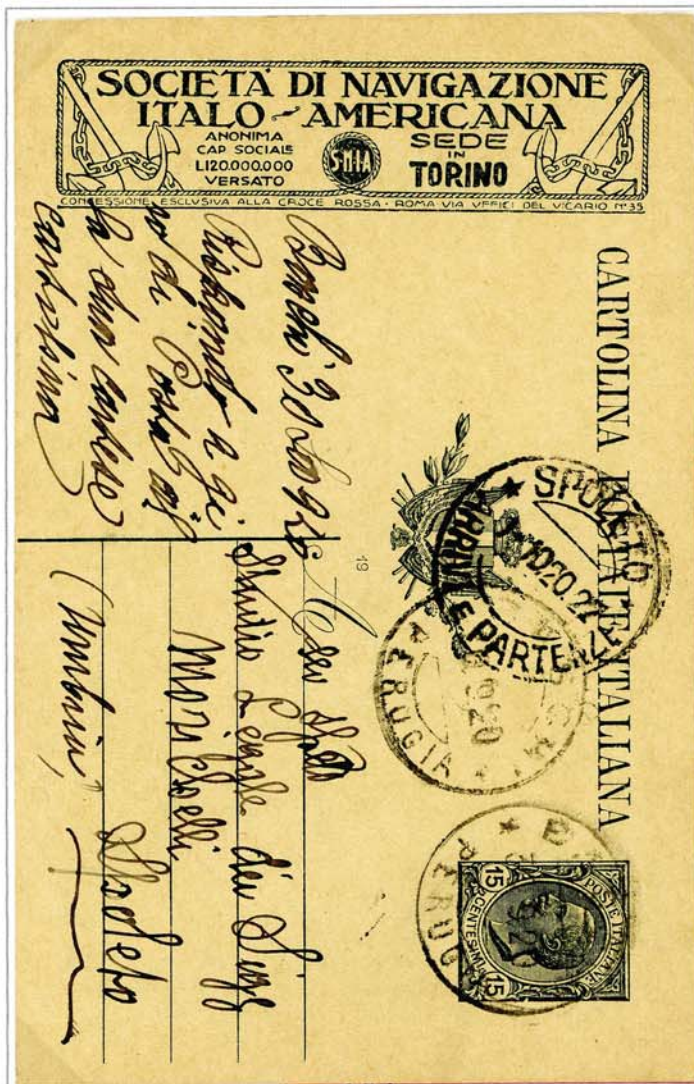 SOCIETÀ DI NAVIGAZIONE
ITALO-AMERICANA
ANONIMA
CAP SOCIALE
L.120.000.000
VERSATO
S·N·I·A
SEDE
IN
TORINO
CONCESSIONE ESCLUSIVA ALLA CROCE ROSSA - ROMA VIA UFFICI DEL VICARIO Nº 35
CARTOLINA POSTALE ITALIANA
SPOLETO
ARRIVI E PARTENZE
PERUGIA
PERUGIA
POSTE ITALIANE
15 CENTESIMI 15
19
30
Rispondo a gi
ro di Posta
la sua cortese
Studio Legale dei Sigg
Morichelli
Spoleto
(Umbria)